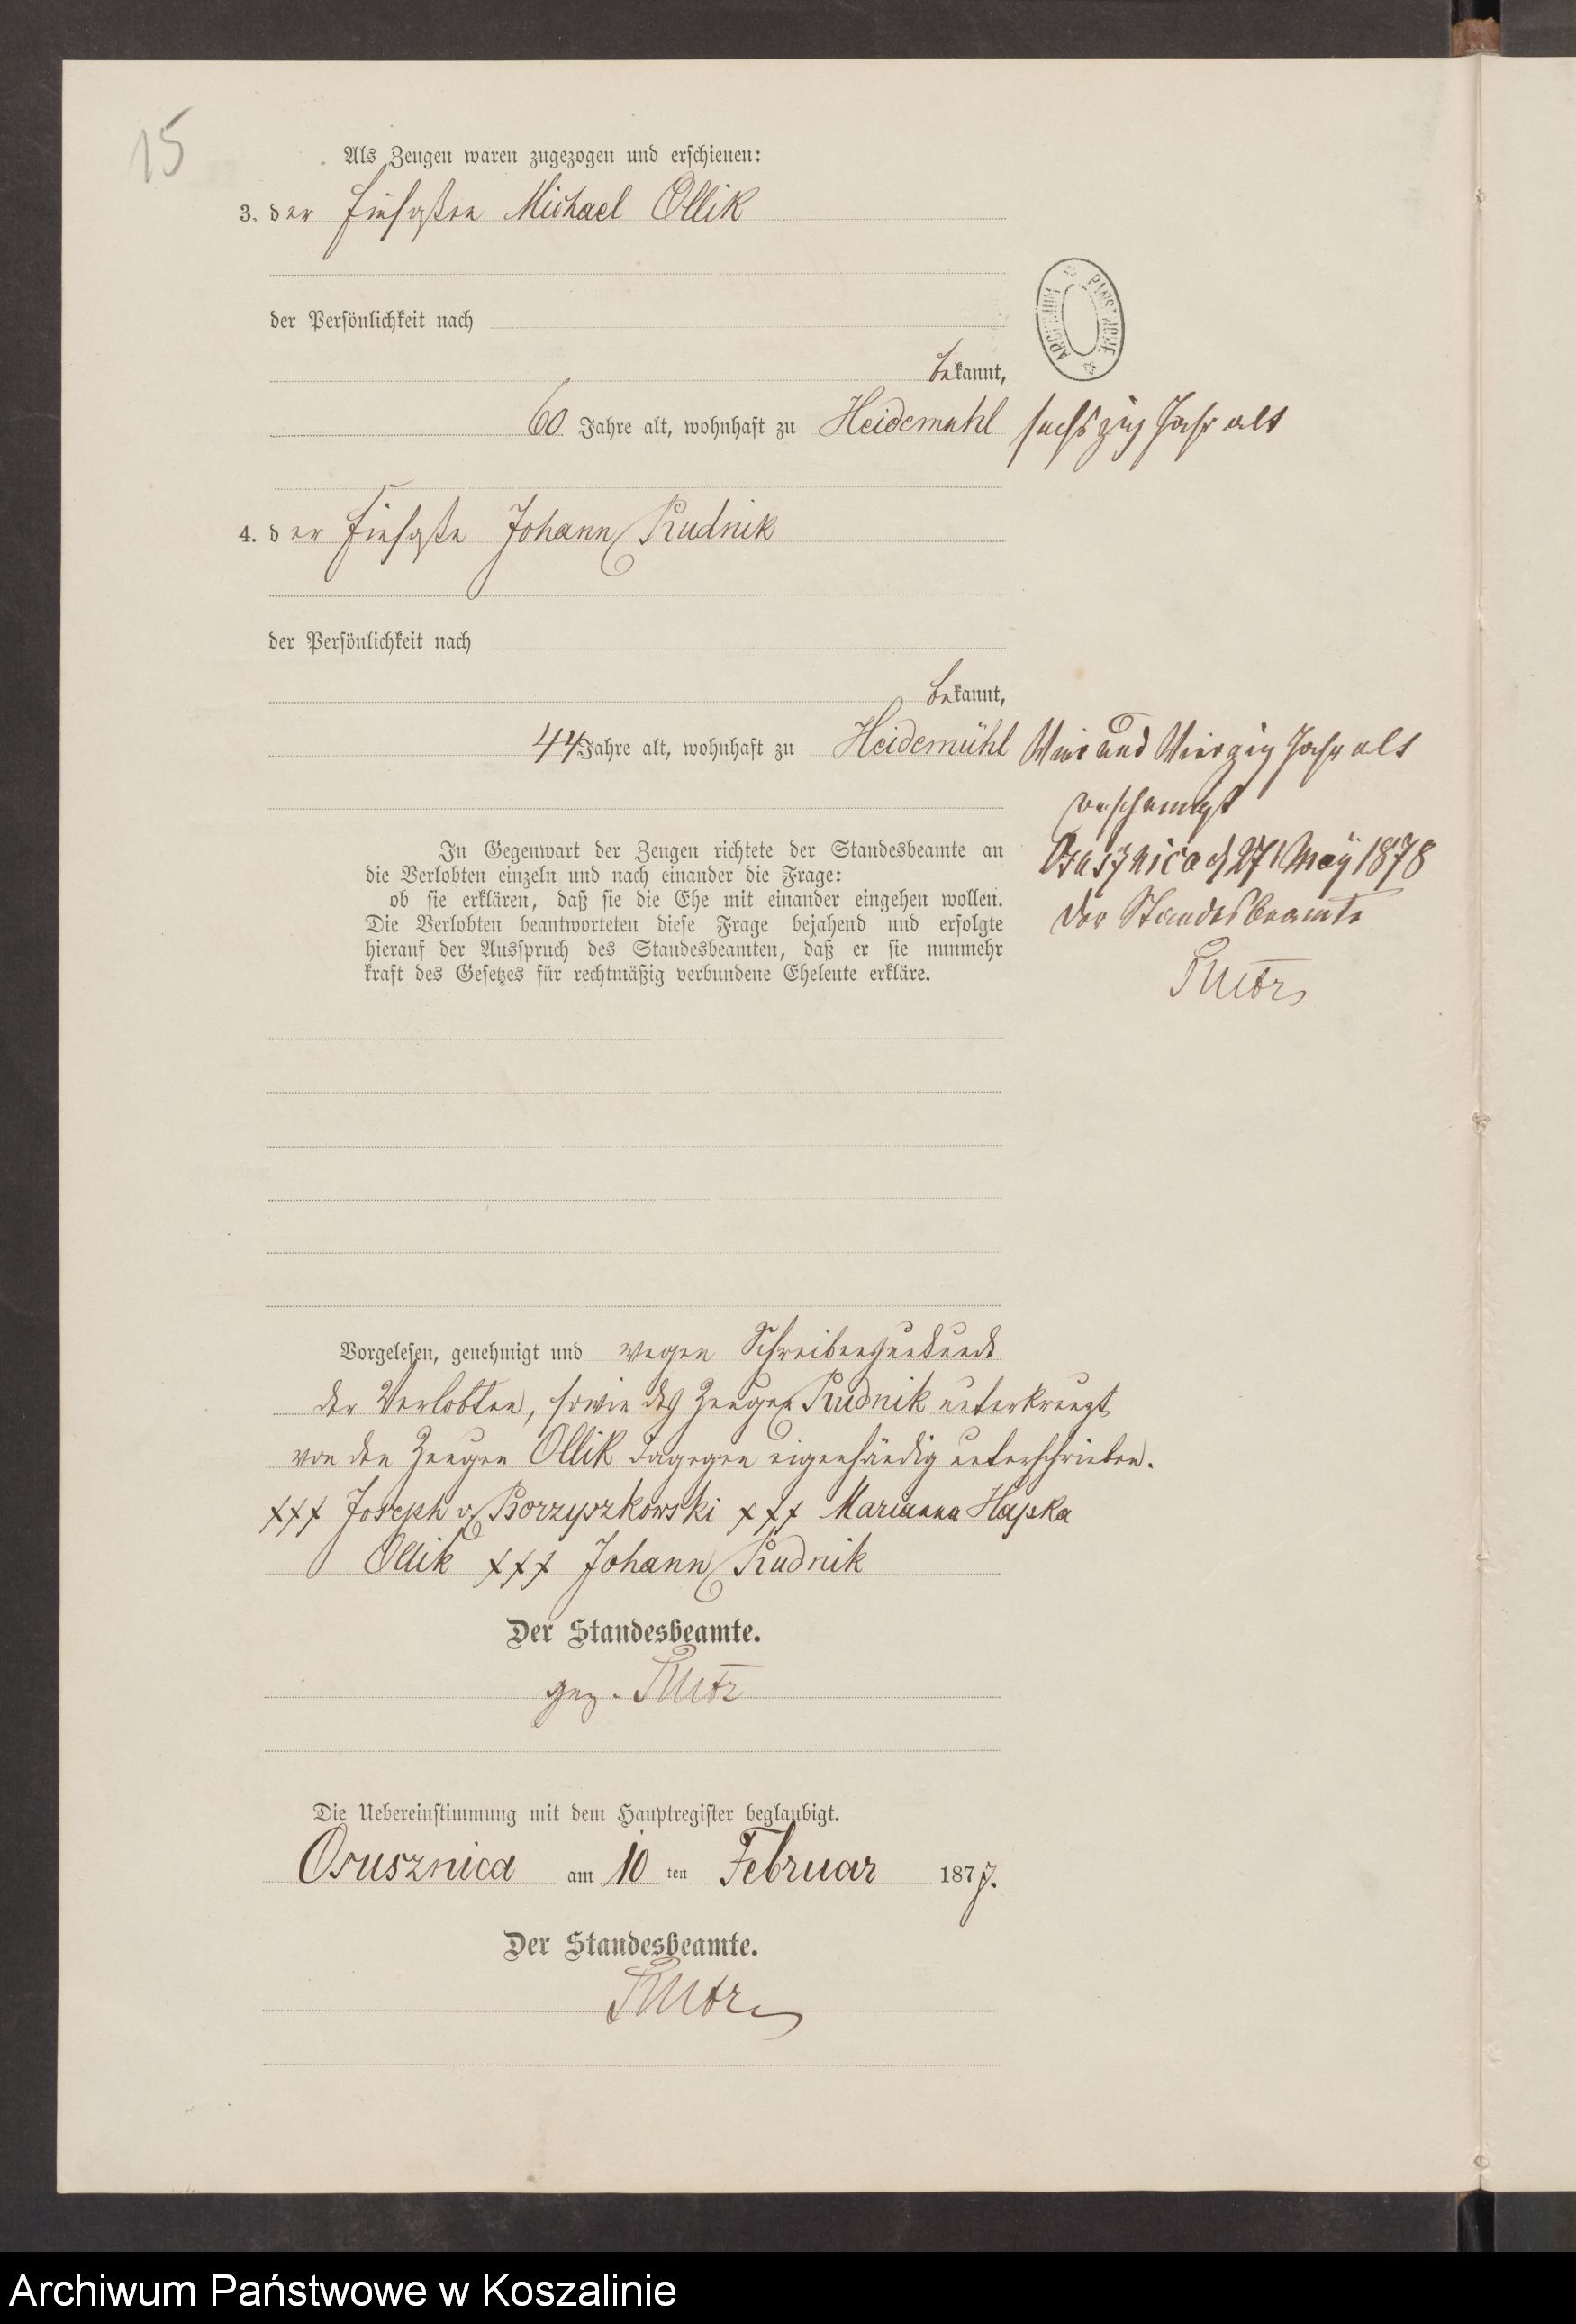 15
Als Zeugen waren zugezogen und erschienen:
3. der Michael Ollik
der Persönlichkeit nach
bekannt,
60 Jahre alt, wohnhaft zu Heidemühl sechszig Jahr alt
4. der Johann Rudnik
der Persönlichkeit nach
bekannt,
44 Jahre alt, wohnhaft zu Heidemühl Vier und Vierzig Jahr alt
Osusznica d 27 May 1878
Der Standesbeamte
In Gegenwart der Zeugen richtete der Standesbeamte an
die Verlobten einzeln und nach einander die Frage:
ob sie erklären, daß sie die Ehe mit einander eingehen wollen.
Die Verlobten beantworteten diese Frage bejahend und erfolgte
hierauf der Ausspruch des Standesbeamten, daß er sie nunmehr
kraft des Gesetzes für rechtmäßig verbundene Eheleute erkläre.
Vorgelesen, genehmigt und wegen Schreibensunkunde
der Verlobten, sowie des Zeugen Rudnik unterkreuzt
von den Zeugen Ollik dagegen eigenhändig unterschrieben.
xxx Joseph v. Borzyszkowski xxx Marianna Hapka
Ollik xxx Johann Rudnik
Der Standesbeamte.
gez.
Die Uebereinstimmung mit dem Hauptregister beglaubigt.
Osusznica am 10 ten Februar 1877.
Der Standesbeamte.
ARCHIWUM PAŃSTWOWE
Archiwum Państwowe w Koszalinie